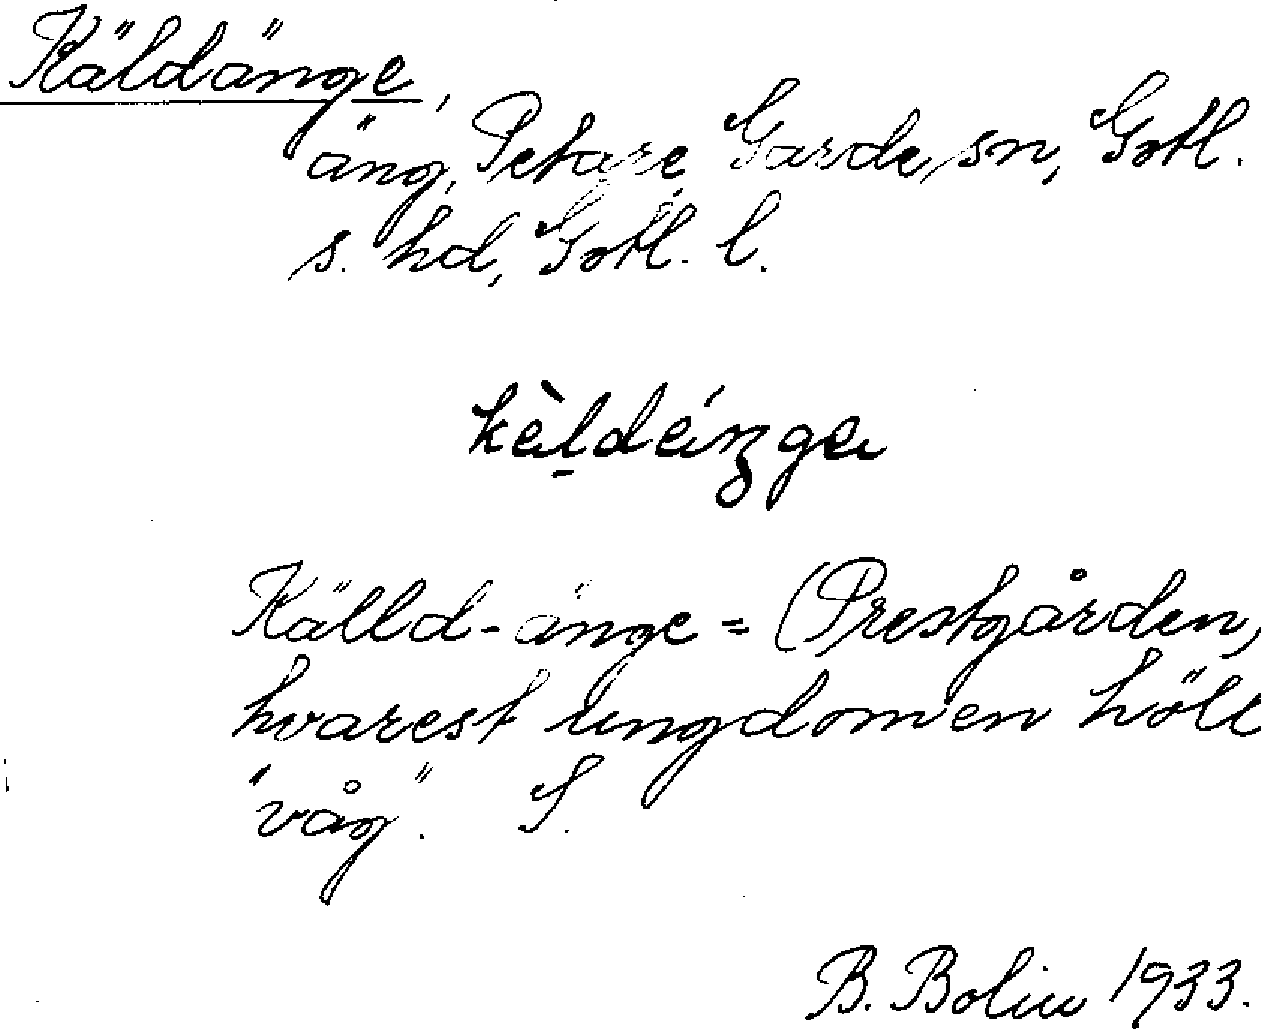 Käldänge,
äng, Petare, Garde sn, Gotl.
s. hd, Gotl. l.
kèldénga
Källd-änge = (Prestgården,
hvarest ungdomen höll
"våg". S.
B. Bolin 1933.